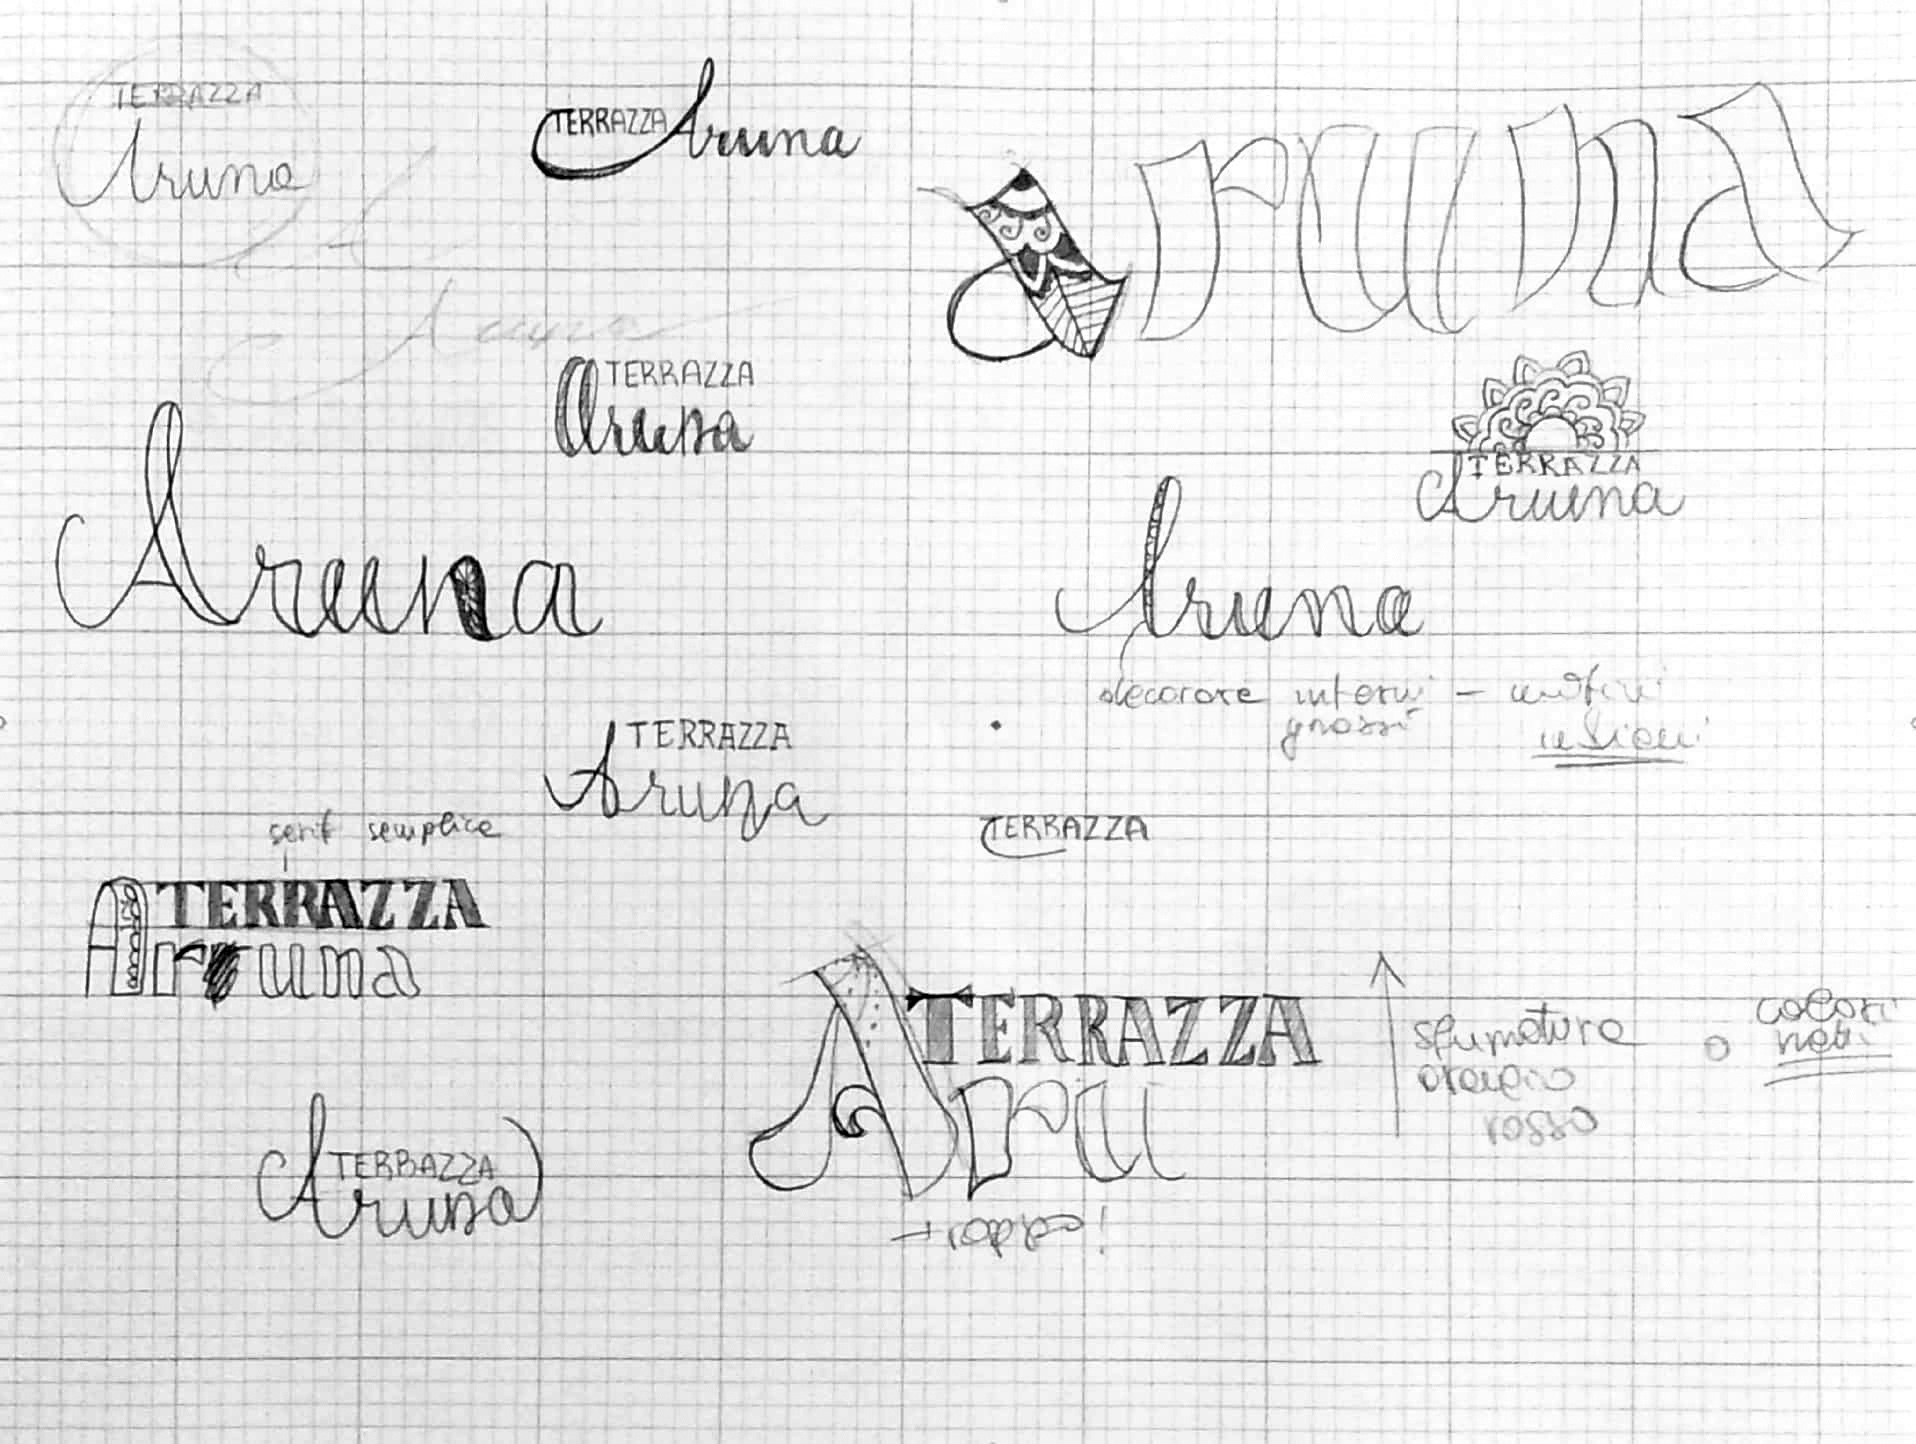 TERRAZZA
Aruna
TERRAZZA Aruna
Aruna
Aruna
TERRAZZA
Aruna
TERRAZZA
Aruna
Aruna
Aruna
decorare interni - motivi
grossi indiani
TERRAZZA
Aruna
TERRAZZA
serif semplice
TERRAZZA
Aruna
TERRAZZA
Aru
sfumatura o colori
arancio netti
rosso
TERRAZZA
Aruna